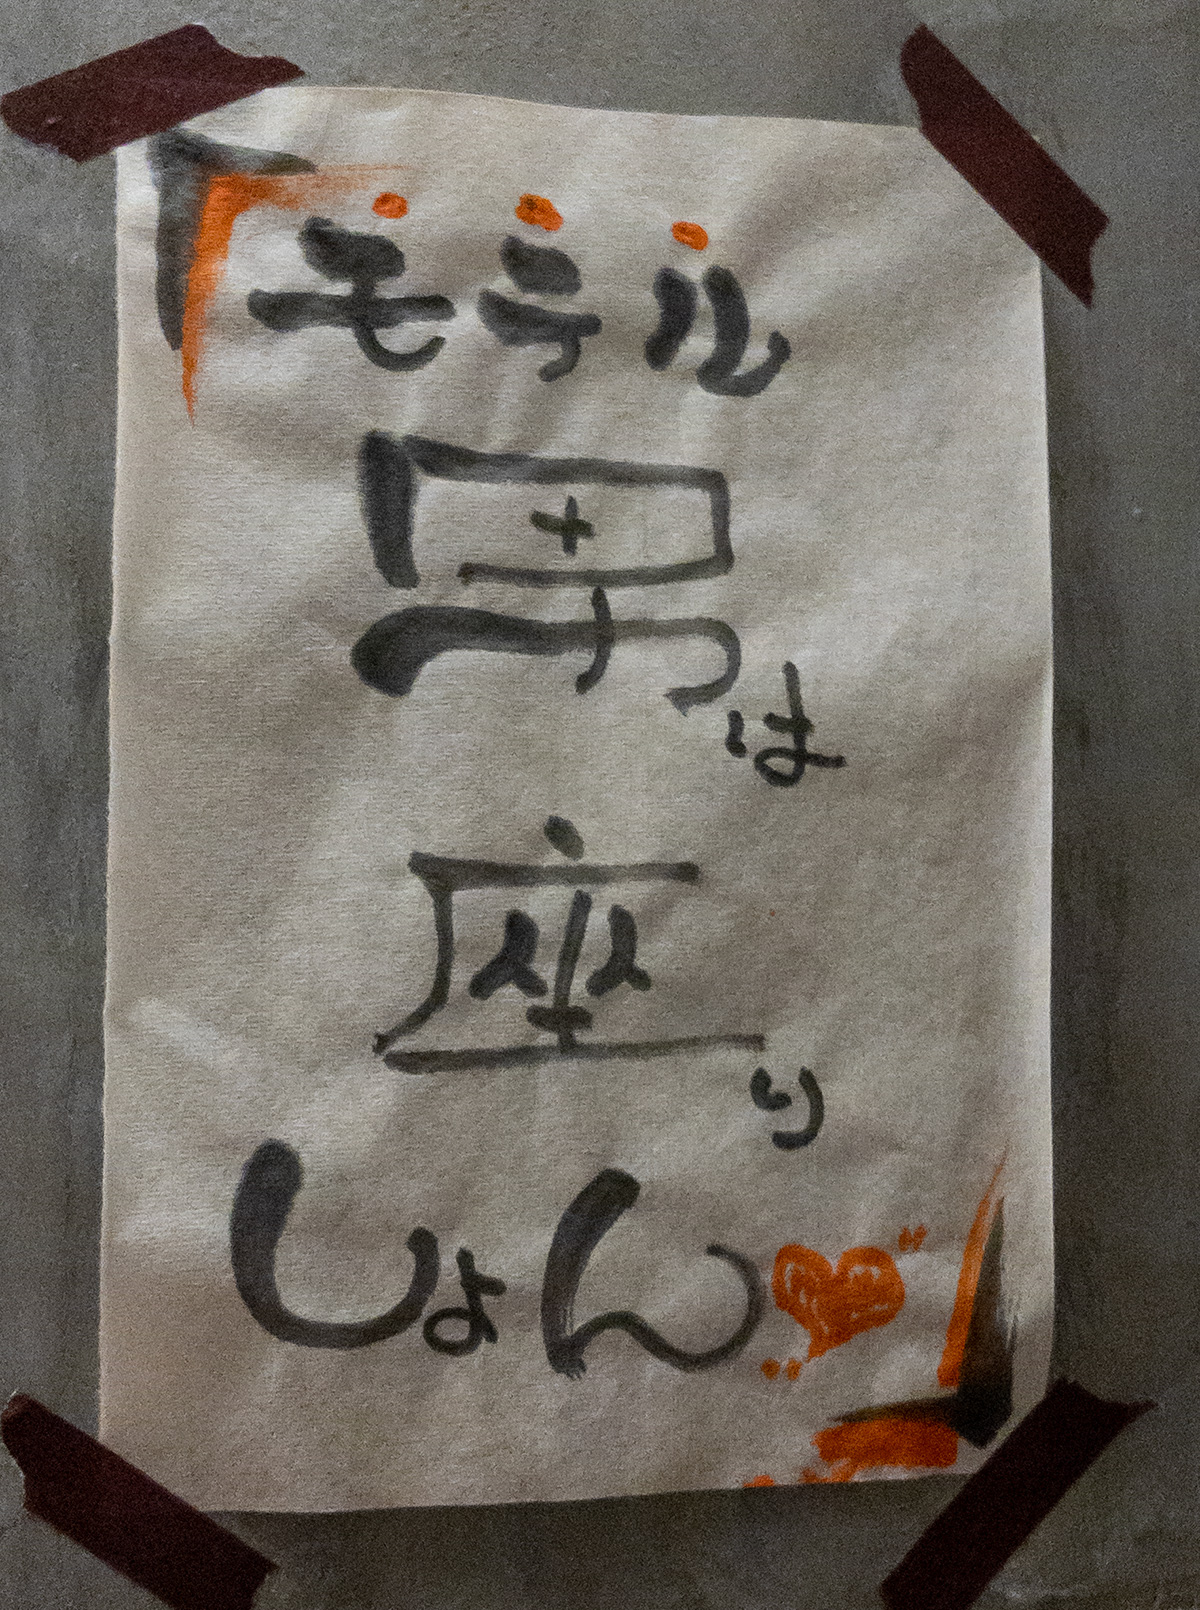 モテル
男は
座り
しょん♥